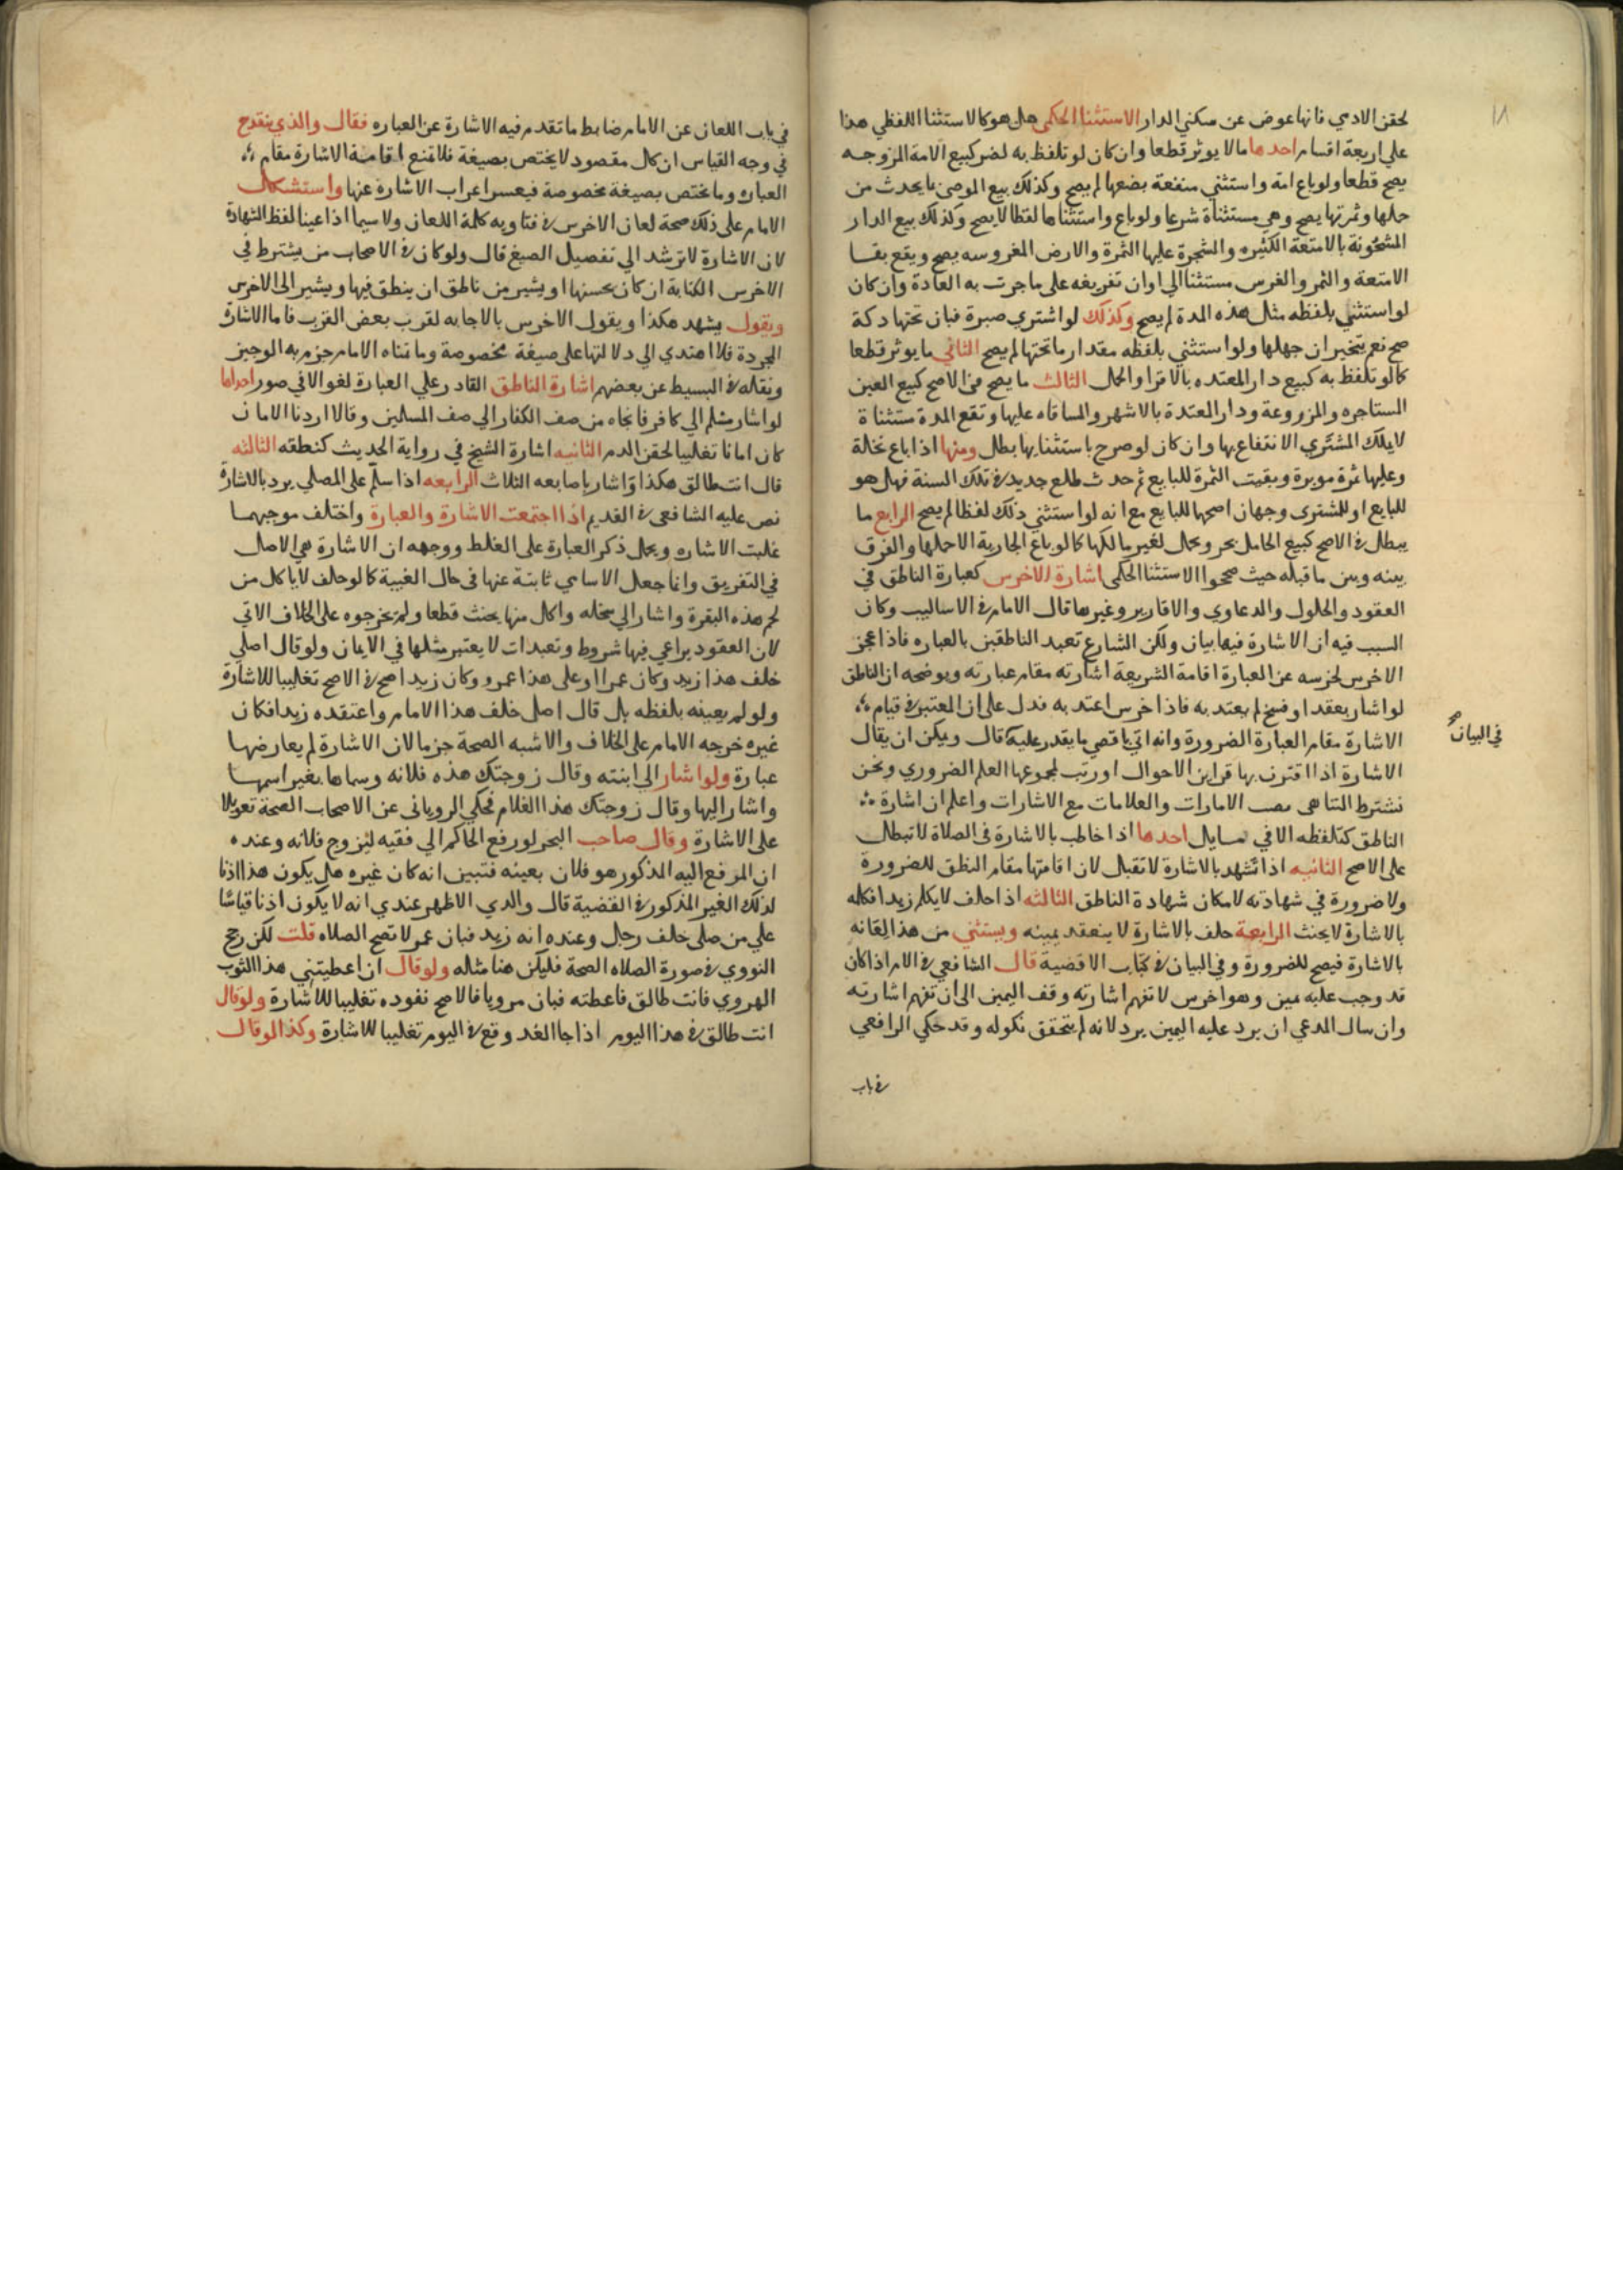 ١٨
لحقن الادمي فانها عوض عن سكني الدار الاستثنا الحكمي هل هو كالاستثنا اللفظي هذا
علي اربعة اقسام احدها ما لا يوثر قطعا وان كان لو تلفظ به لضر كبيع الامة المزوجه
يصح قطعا ولو باع امة واستثني منفعة بضعها لم يصح وكذلك بيع الموصي بما يحدث من
حملها وثمرتها يصح وهي مستثناة شرعا ولو باع واستثناها لفظا لا يصح وكذلك بيع الدار
المشحونة بالامتعة الكثيره والشجرة عليها الثمرة والارض المغروسه يصح ويقع بقا
الامتعة والثمر والغرس مستثنا الي اوان تفريغه علي ما جرت به العادة وان كان
لو استثني بلفظه مثل هذه المدة لم يصح وكذلك لو اشتري صبرة فبان تحتها دكة
صح نعم يتخير ان جهلها ولو استثني بلفظه مقدار ما تحتها لم يصح الثاني ما يوثر قطعا
كالو تلفظ به كبيع دار المعتده بالاقرا والحمل الثالث ما يصح في الاصح كبيع العين
المستاجره والمزروعة ودار المعتدة بالاشهر والمساقاه عليها وتقع المدة مستثناة
لا يملك المشتري الانتفاع بها وان كان لو صرح باستثنايها بطل ومنها اذا باع نخلة
وعليها ثمرة موبرة وبقيت الثمرة للبايع ثم حدث طلع جديد في تلك السنة فهل هو
للبايع او للمشتري وجهان اصحها للبايع مع انه لو استثني ذلك لفظا لم يصح الرابع ما
يبطل في الاصح كبيع الحامل بحر وبحمل لغير مالكها كالو باع الجارية الا حملها والفرق
بينه وبين ما قبله حيث صححوا الاستثنا الحكمي اشارة الاخرس كعبارة الناطق في
العقود والحلول والدعاوي والاقارير وغيرها قال الامام في الاساليب وكان
السبب فيه ان الاشارة فيها بيان ولكن الشارع تعبد الناطقين بالعباره فاذا عجز
الاخرس لخرسه عن العبارة اقامة الشريعة اشارته مقام عبارته ويوضحه ان الناطق
لو اشار بعقد او فسخ لم يعتد به فاذا خرس اعتد به فدل علي ان المعتبر في قيام
الاشارة مقام العبارة الضرورة وانه اتي باقصي ما يقدر عليه قال ويمكن ان يقال
في البيان صح
الاشارة اذا اقترن بها قراين الاحوال اورثت لمجموعها العلم الضروري ونحن
نشترط التناهي نصب الامارات والعلامات مع الاشارات واعلم ان اشارة
الناطق كتلفظه الا في مسايل احدها اذا خاطب بالاشارة في الصلاة لا تبطل
علي الاصح الثانيه اذا شهد بالاشارة لا تقبل لان اقامتها مقام النطق للضرورة
ولا ضرورة في شهادته لامكان شهادة الناطق الثالثه اذا حلف لا يكلم زيدا فكلمه
بالاشارة لا يحنث الرابعة حلف بالاشارة لا ينعقد يمينه ويستثني من هذا لعانه
بالاشارة فيصح للضرورة وفي البيان في كتاب الاقضية قال الشافعي في الام اذا كان
قد وجب عليه يمين وهو اخرس لا تفهم اشارته وقف اليمين الي ان تفهم اشارته
وان سال المدعي ان يرد عليه اليمين يرد لانه لم يتحقق نكوله وقد حكي الرافعي
في باب
في باب اللعان عن الامام ضابط ما تقدم فيه الاشارة عن العباره فقال والذي ينقدح
في وجه القياس ان كل مقصود لا يختص بصيغة فلا تمنع اقامة الاشارة مقام
العباره وما يختص بصيغة مخصوصة فيعسر اعراب الاشارة عنها واستشكل
الامام علي ذلك صحة لعان الاخرس في فتاويه كلمة اللعان ولا سيما اذا عينا لفظ الشهادة
لان الاشارة لا ترشد الي تفصيل الصيغ قال ولو كان في الاصحاب من يشترط في
الاخرس الكتابة ان كان يحسنها او يشير من ناطق ان ينطق فيها ويشير الي الاخرس
ويقول يشهد هكذا ويقول الاخرس بالاجابه لقرب بعض القرب فاما الاشارة
المجردة فلا اهتدي الي دلالتها علي صيغة مخصوصة وما تمناه الامام جزم به الوجيز
ونقله في البسيط عن بعضهم اشارة الناطق القادر علي العبارة لغو الا في صور احداها
لو اشار مسلم الي كافر فانجاه من صف الكفار الي صف المسلمين وقالا اردنا الامان
كان امانا تغليبا لحقن الدم الثانيه اشارة الشيخ في رواية الحديث كنطقه الثالثه
قال انت طالق هكذا واشار باصابعه الثلاث الرابعه اذا سلم علي المصلي يرد بالاشارة
نص عليه الشافعي في القديم اذا اجتمعت الاشارة والعبارة واختلف موجبهما
غلبت الاشاره ويحمل ذكر العبارة علي الغلط ووجهه ان الاشارة هي الاصل
في التفريق وانما جعل الاسامي ثابتة عنها في حال الغيبة كالو حلف لا ياكل من
لحم هذه البقرة واشار الي سخله واكل منها يحنث قطعا ولم يخرجوه علي الخلاف الاتي
لان العقود يراعي فيها شروط وتعبدات لا يعتبر مثلها في الايمان ولو قال اصلي
خلف هذا زيد وكان عمرا او علي هذا عمرو وكان زيدا صح في الاصح تغليبا للاشارة
ولو لم يعينه بلفظه بل قال اصلي خلف هذا الامام واعتقده زيدا فكان
غيره خرجه الامام علي الخلاف والاشبه الصحة جزما لان الاشارة لم يعارضها
عبارة ولو اشار الي ابنته وقال زوجتك هذه فلانه وسماها بغير اسمها
واشار اليها وقال زوجتك هذا الغلام فحكي الروياني عن الاصحاب الصحة تعويلا
علي الاشارة وقال صاحب البحر لو رفع الحاكم الي فقيه ليزوج فلانه وعنده
ان المرفع اليه المذكور هو فلان بعينه فتبين انه كان غيره هل يكون هذا اذنا
لذلك الغير المذكور في القضية قال والذي الاظهر عندي انه لا يكون اذنا قياسا
علي من صلي خلف رجل وعنده انه زيد فبان عمر لا تصح الصلاه قلت لكن رجح
النووي في صورة الصلاه الصحة فليكن هنا مثله ولو قال ان اعطيتني هذا الثوب
الهروي فانت طالق فاعطته فبان مرويا فالاصح نفوده تغليبا للاشارة ولو قال
انت طالق في هذا اليوم اذا جا الغد وقع في اليوم تغليبا للاشارة وكذا لو قال